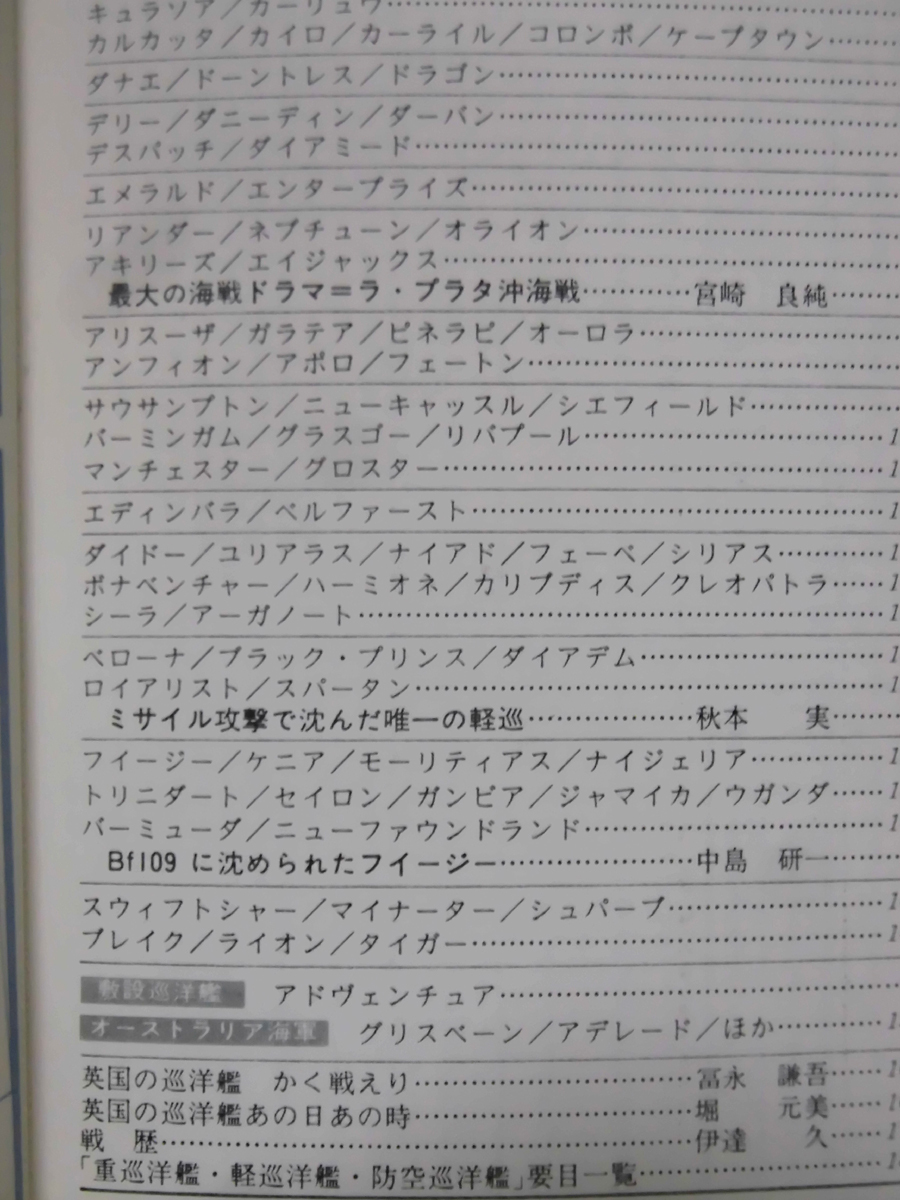 キュラソア／カーリュウ………………
カルカッタ／カイロ／カーライル／コロンボ／ケープタウン………
ダナエ／ドーントレス／ドラゴン………………
デリー／ダニーディン／ダーバン………………
デスパッチ／ダイアミード………………
エメラルド／エンタープライズ………………
リアンダー／ネプチューン／オライオン………………
アキリーズ／エイジャックス………………
最大の海戦ドラマ＝ラ・プラタ沖海戦…………宮崎　良純………
アリスーザ／ガラテア／ピネラピ／オーロラ………………
アンフィオン／アポロ／フェートン………………
サウサンプトン／ニューキャッスル／シエフィールド…………
バーミンガム／グラスゴー／リバプール………………1
マンチェスター／グロスター………………1
エディンバラ／ベルファースト………………1
ダイドー／ユリアラス／ナイアド／フェーベ／シリアス…………1
ボナベンチャー／ハーミオネ／カリブディス／クレオパトラ……1
シーラ／アーガノート………………1
ベローナ／ブラック・プリンス／ダイアデム………………1
ロイアリスト／スパータン………………1
ミサイル攻撃で沈んだ唯一の軽巡………………秋本　実………
フイージー／ケニア／モーリティアス／ナイジェリア…………1
トリニダート／セイロン／ガンビア／ジャマイカ／ウガンダ……1
バーミューダ／ニューファウンドランド………………1
Bf109 に沈められたフイージー………………中島　研一………
スウィフトシャー／マイナーター／シュパーブ………………1
ブレイク／ライオン／タイガー………………1
敷設巡洋艦　アドヴェンチュア………………
オーストラリア海軍　グリスベーン／アデレード／ほか…………1
英国の巡洋艦　かく戦えり………………冨永　謙吾……1
英国の巡洋艦あの日あの時………………堀　元美……1
戦　歴………………伊達　久……1
「重巡洋艦・軽巡洋艦・防空巡洋艦」要目一覧………………1